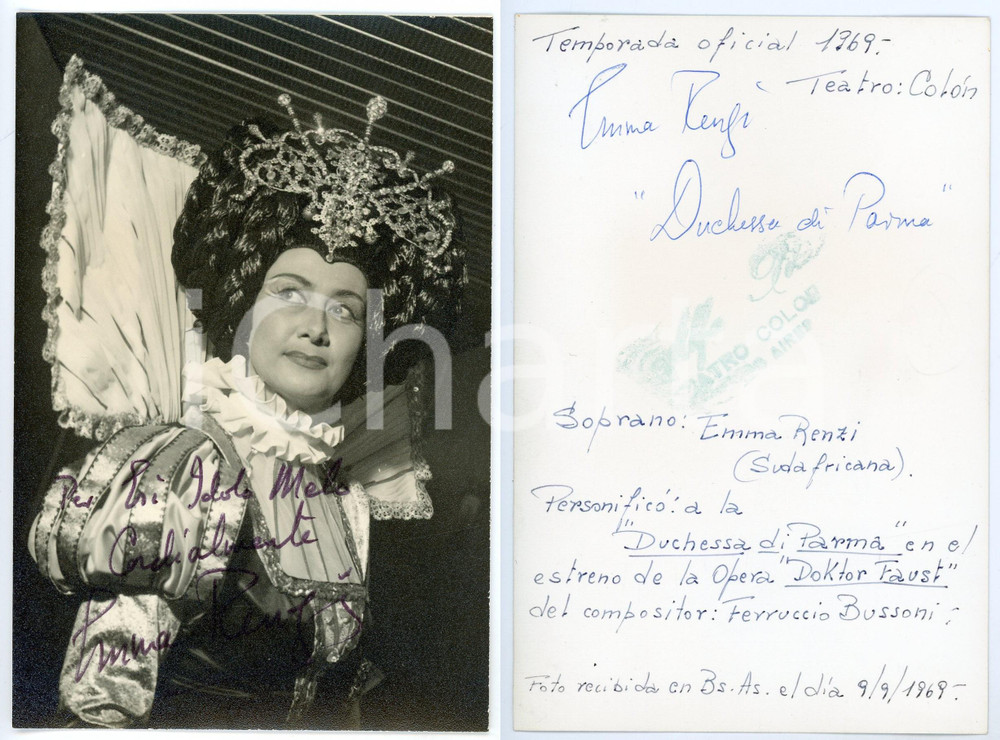 Per Eri Idolo Melo
Cordialmente
Emma Renzi
Temporada oficial 1969.-
Teatro: Colón
Emma Renzi
"Duchessa di Parma"
TEATRO COLON
BUENOS AIRES
Soprano: Emma Renzi
(Sudafricana).
Personificó: a la
"Duchessa di Parma" en el
estreno de la Opera "Doktor Faust"
del compositor: Ferruccio Bussoni.-
Foto recibida en Bs. As. el día 9/9/1969.-
iCharta